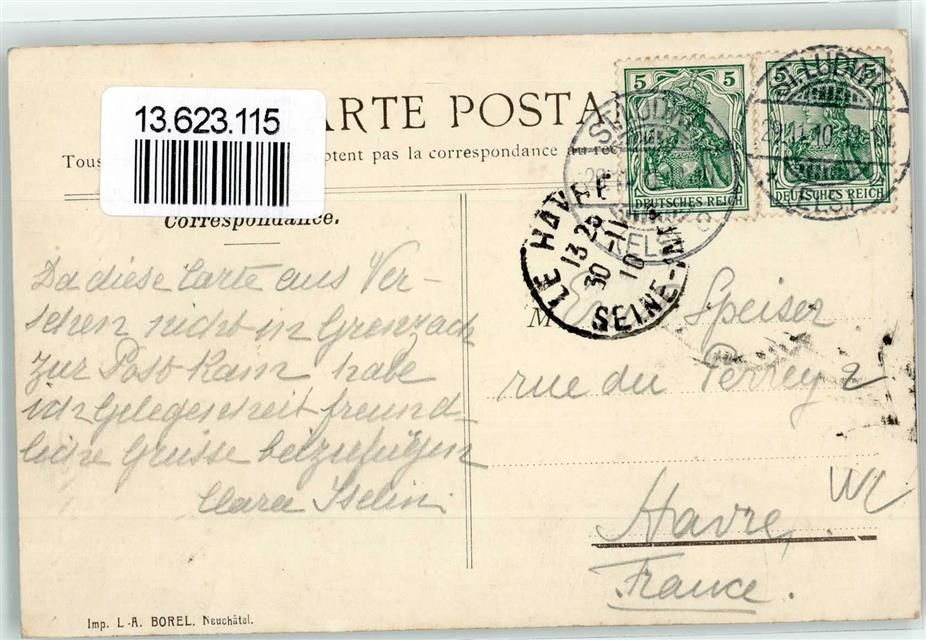 13.623.115
CARTE POSTA
5 5
Tous ptent pas la correspondance au rec
DEUTSCHES REICH DEUTSCHES REICH
ST. LUDWIG
29.11.10
Correspondance.
LE HAVRE
13 25
30 -11
10
SEINE-INF
Da diese Carte aus Ver-
sehen nicht in Grenzach
zur Post kam habe
ich Gelegenheit freund-
liche Grüsse beizufügen
Clara Iselin.
M Speiser
rue du Perrey 2
Havre,
France.
Imp. L.-A. BOREL, Neuchâtel.